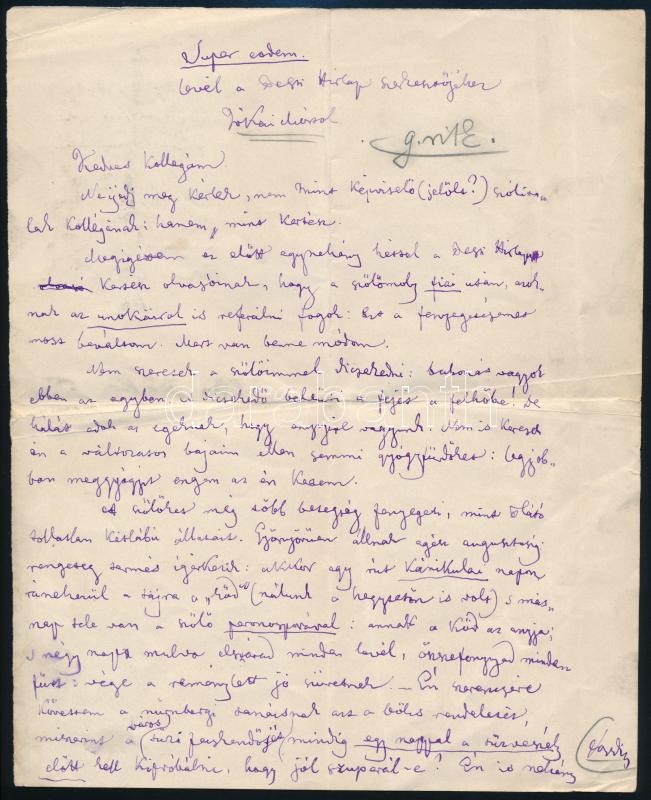 Super eodem.
Levél a Pesti Hirlap szerkesztőjéhez
Jókai Mórtól
Kedves Kollegám.
Ne ijedj meg kérlek, nem mint képviselő (jelölt?) szólíta-
lak Kollégának: hanem, mint Kertész.
Megigértem ez előtt egynehány héttel a Pesti Hirlap
Kertész olvasóinak, hogy a szőlőmoly fiai után, azok-
nak az unokáirol is referálni fogok: Ezt a fenyegetésemet
most beváltom. Mert van benne módom.
Nem szeretek a szőlőimmel dicsekedni: babonás vagyok
ebben az egyben, a dicsekedő beleüti a fejét a felhőbe! De
hálát adok az egeknek, hogy ennyire vagyunk. Nem is keresek
én a változatos bajaim ellen semmi gyógyfürdőket: legjob-
ban meggyógyit engem az én Kertem.
A szőlőket még több betegség fenyegeti, mint Plátó
tollatlan kétlábú állatait. Gyönyörüen állnak egész augusztusig
rengeteg termés igérkezik: akkor egy rút Kánikulai napon
ránehezül a tájra a „Köd" (nálunk a hegytetőn is volt) s más-
nap tele van a szőlő peronosporával: annak a Köd az anyja;
s négy nap mulva elszárad minden levél, összefonnyad minden
fürt: vége a reménylett jó szüretnek. – Én szerencsére
követtem a nürnbergi tanácsnak azt a bölcs rendeletét,
miszerint a városi tüzi fecskendőjét mindig egy nappal a tűzveszély
előtt kell Kipróbálni, hogy jól szuperál-e? Én is néhány
darabanth